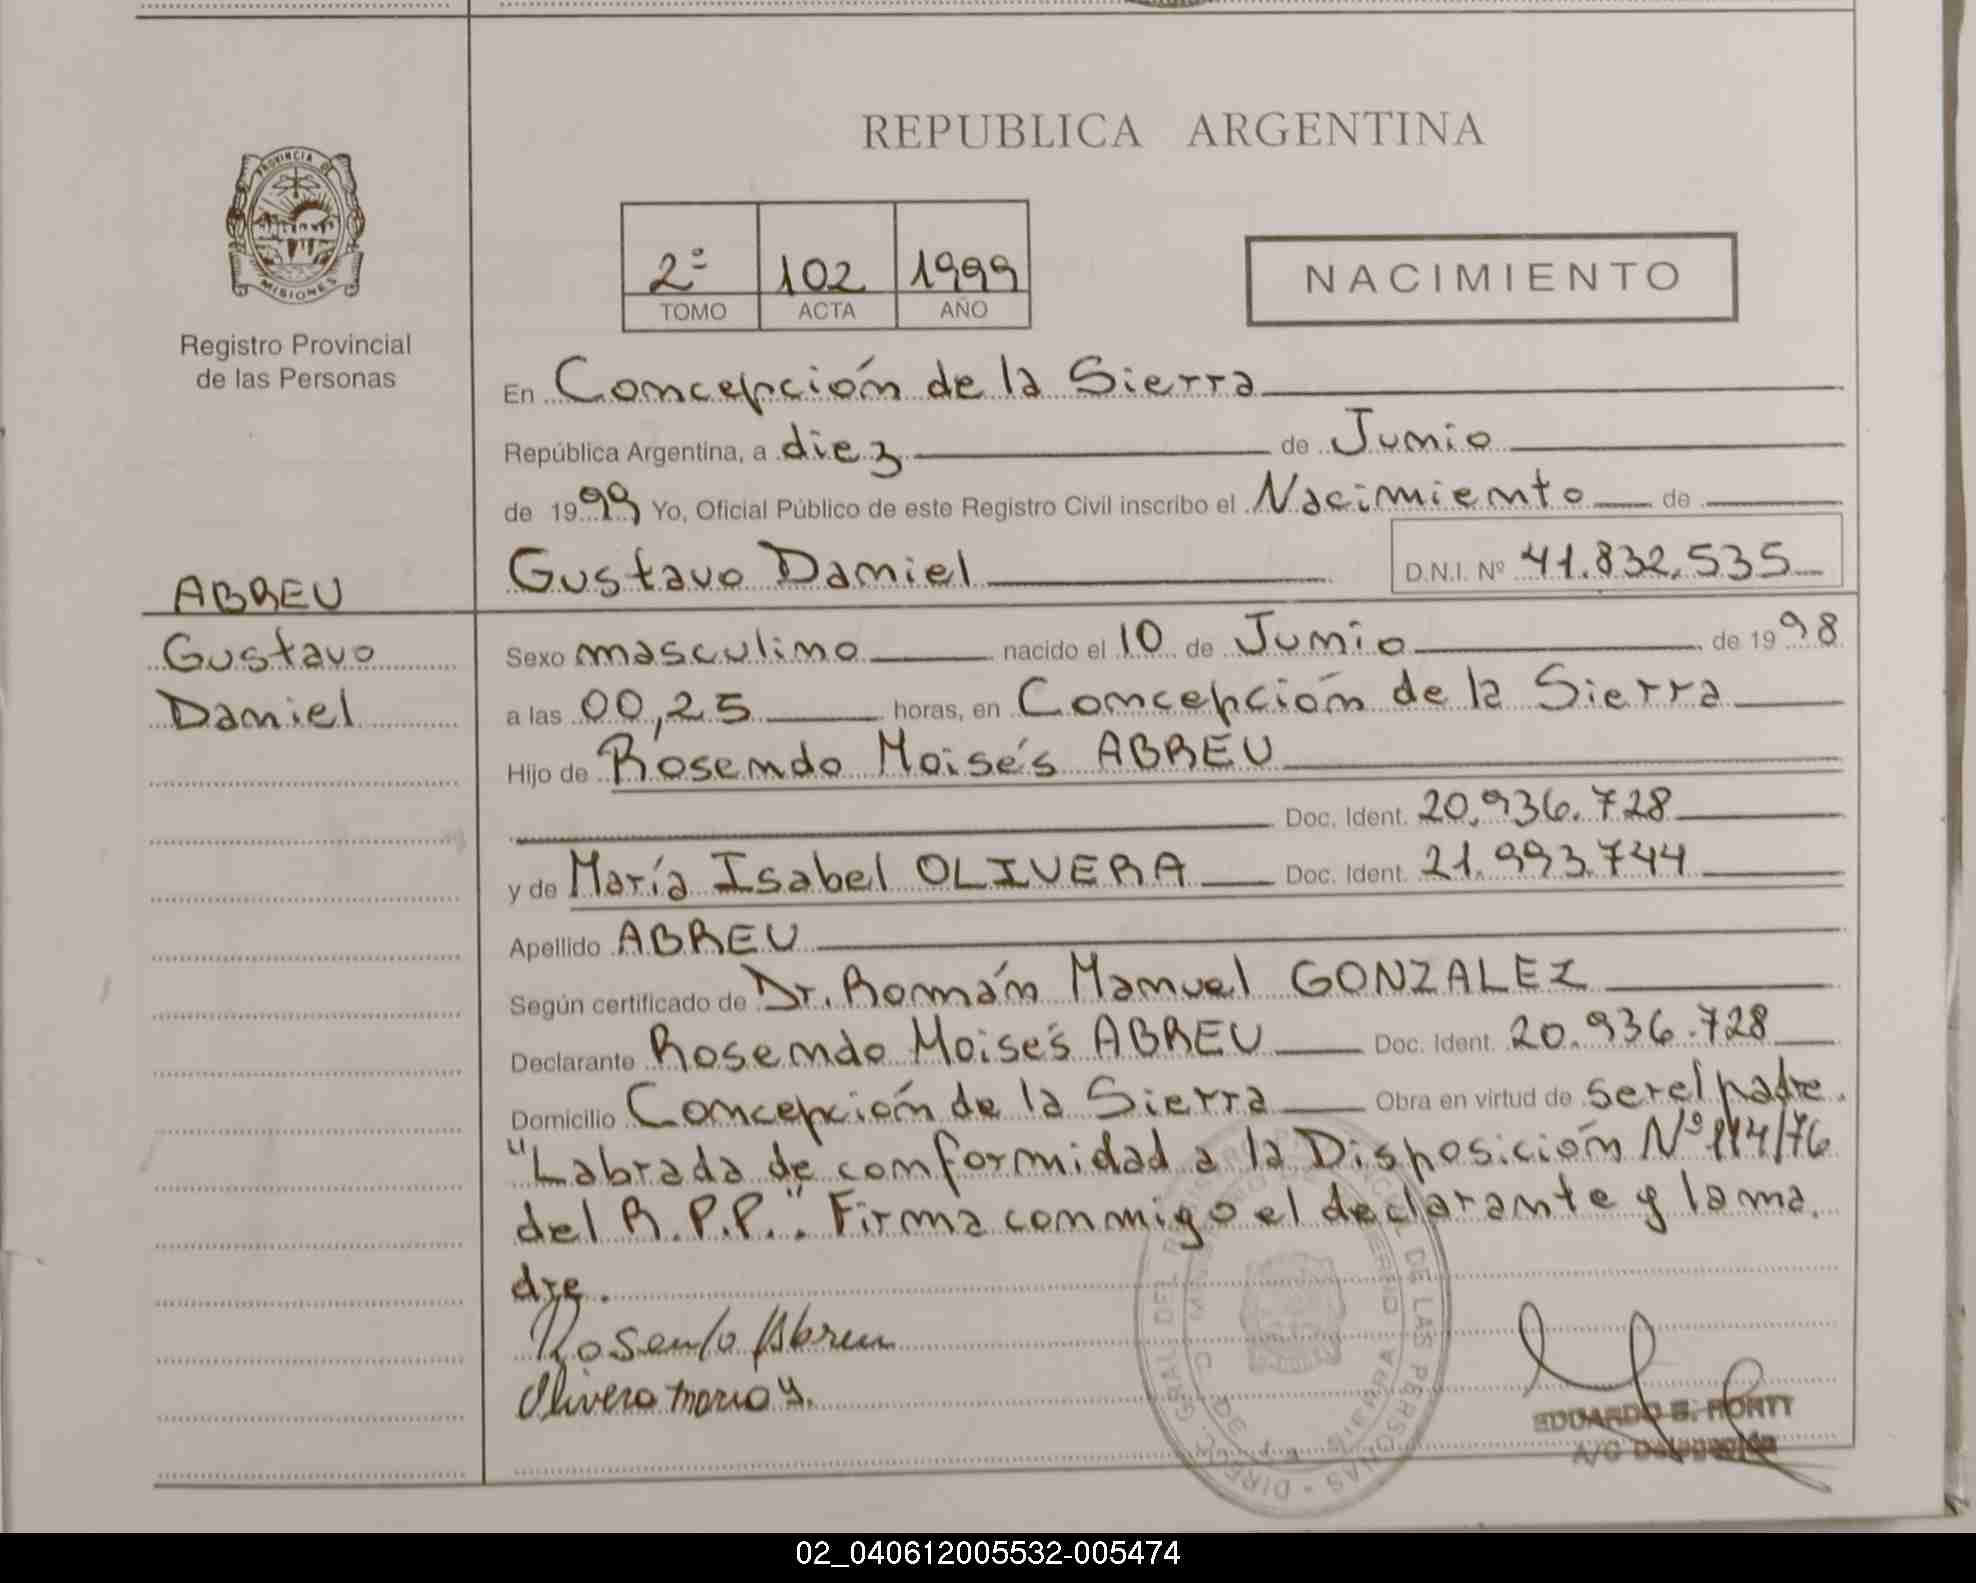 REPUBLICA ARGENTINA
PROVINCIA DE
MISIONES
Registro Provincial
de las Personas
2º 102 1999
TOMO ACTA AÑO
NACIMIENTO
En Concepción de la Sierra
República Argentina, a diez de Junio
de 1999 Yo, Oficial Público de este Registro Civil inscribo el Nacimiento de
Gustavo Daniel D.N.I. Nº 41.832.535
ABREU
Gustavo
Daniel
Sexo masculino nacido el 10 de Junio de 1998
a las 00,25 horas, en Concepción de la Sierra
Hijo de Rosendo Moisés ABREU
Doc. Ident. 20.936.728
y de María Isabel OLIVERA Doc. Ident. 21.993.744
Apellido ABREU
Según certificado de Dr. Román Manuel GONZALEZ
Declarante Rosendo Moisés ABREU Doc. Ident. 20.936.728
Domicilio Concepción de la Sierra Obra en virtud de ser el padre.
"Labrada de conformidad a la Disposición Nº 114/76
del R.P.P.". Firma conmigo el declarante y la ma
dre.
Rosendo Abreu
Olivera Maria Y.
EDUARDO
A/C Delegación
02_040612005532-005474